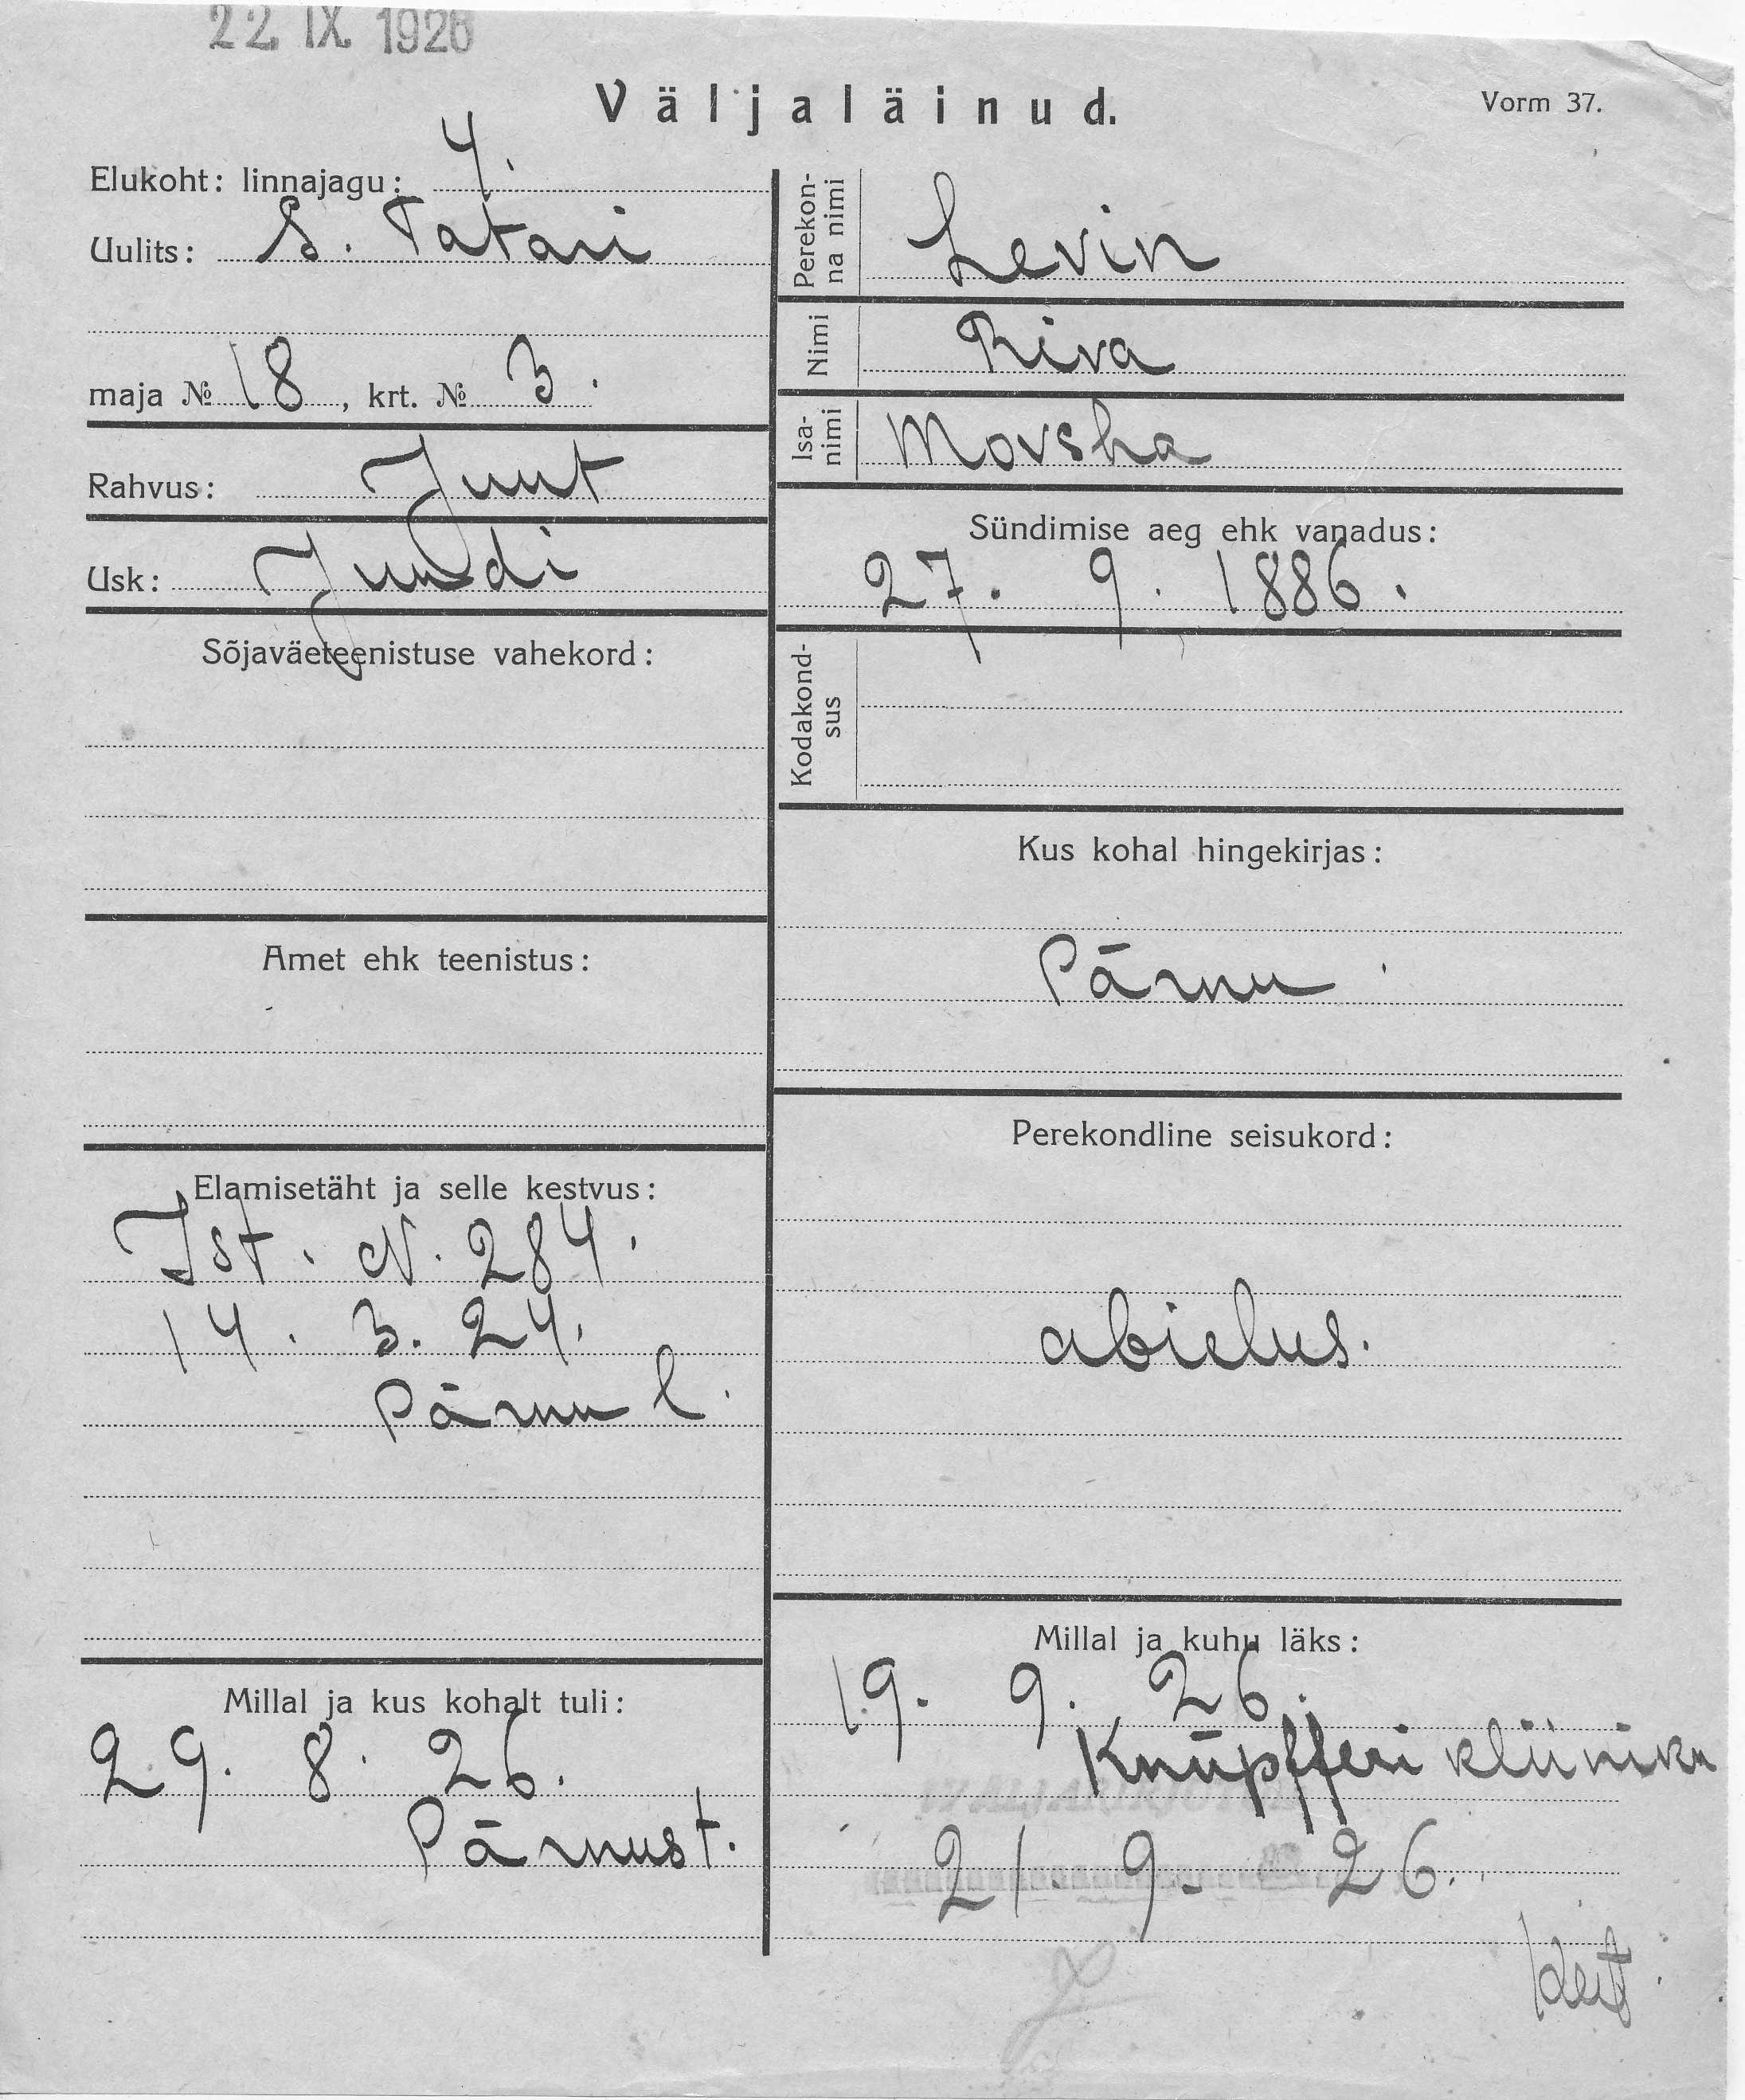 22 IX 1926
Väljaläinud.
Vorm 37.
Elukoht: linnajagu: 4.
Uulits: S. Tatari
maja № 18, krt. № 3.
Rahvus: Juut
Usk: Juudi
Sõjaväeteenistuse vahekord:
Amet ehk teenistus:
Elamisetäht ja selle kestvus:
Ist. N. 284.
14. 3. 24.
Pärnu l.
Millal ja kus kohalt tuli:
29. 8. 26.
Pärnust.
Perekon-
na nimi
Levin
Nimi
Riva
Isa-
nimi
Movsha
Sündimise aeg ehk vanadus:
27. 9. 1886.
Kodakond-
sus
Kus kohal hingekirjas:
Pärnu
Perekondline seisukord:
abielus.
Millal ja kuhu läks:
19. 9. 26.
Knüpfferi kliiniku
21. 9. 26.